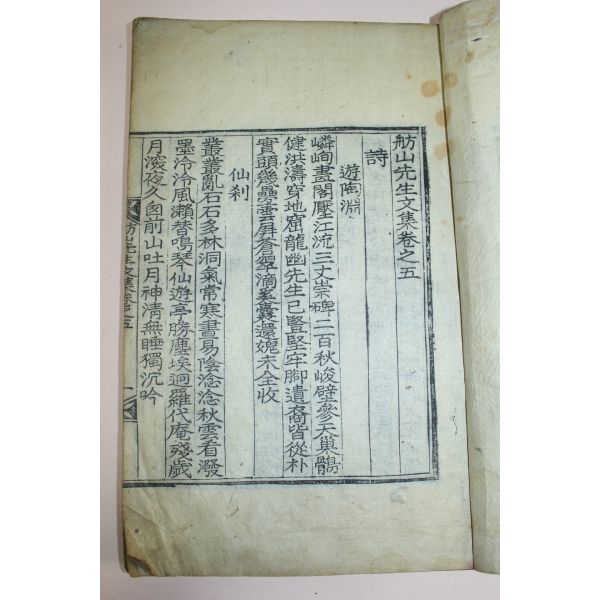 舫山先生文集卷之五
詩
遊陶淵
嶙峋畫閣壓江流三丈崇碑二百秋峻壁參天巢鶻
健洪濤穿地窟龍幽先生已豎堅牢脚遺裔皆從朴
實頭幾疊雲屛蒼翠滴奚囊還媿未全收
仙刹
叢叢亂石石多林洞氣常寒晝易陰淰淰秋雲看潑
墨泠泠風瀨替鳴琴仙遊亭勝塵埃逈羅代庵殘歲
月深夜久囪前山吐月神淸無睡獨沉吟
舫山先生文集卷之五 一